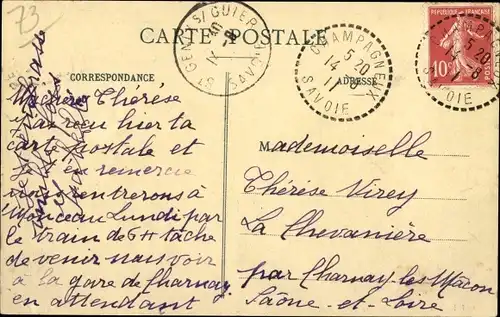 73
CARTE POSTALE
CORRESPONDANCE
ADRESSE
ST GENIX S/ GUIERS
SAVOIE
CHAMPAGNEUX
5 20
14 - 8
11
SAVOIE
REPUBLIQUE FRANÇAISE
10c
Ma chère Thérèse
J'ai reçu hier ta
carte postale et
en remercie
nous rentrerons à
Monceau Lundi par
le train de 6H tâche
de venir nous voir
à la gare de Charnay
en attendant
Mademoiselle
Thérèse Virey
La Chevanière
par Charnay-les-Mâcon
Saône-et-Loire